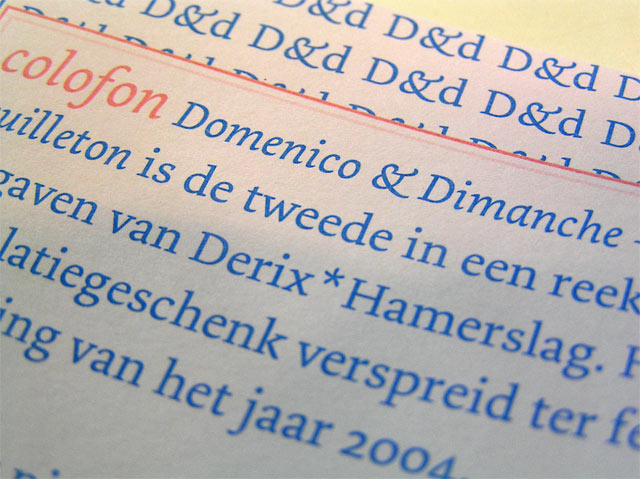 D&d D&d D&d D&d
D&d D&d D&d D&d D&d
colofon Domenico & Dimanche
uilleton is de tweede in een reek
gaven van Derix*Hamerslag.
latiegeschenk verspreid ter fe
ing van het jaar 2004.